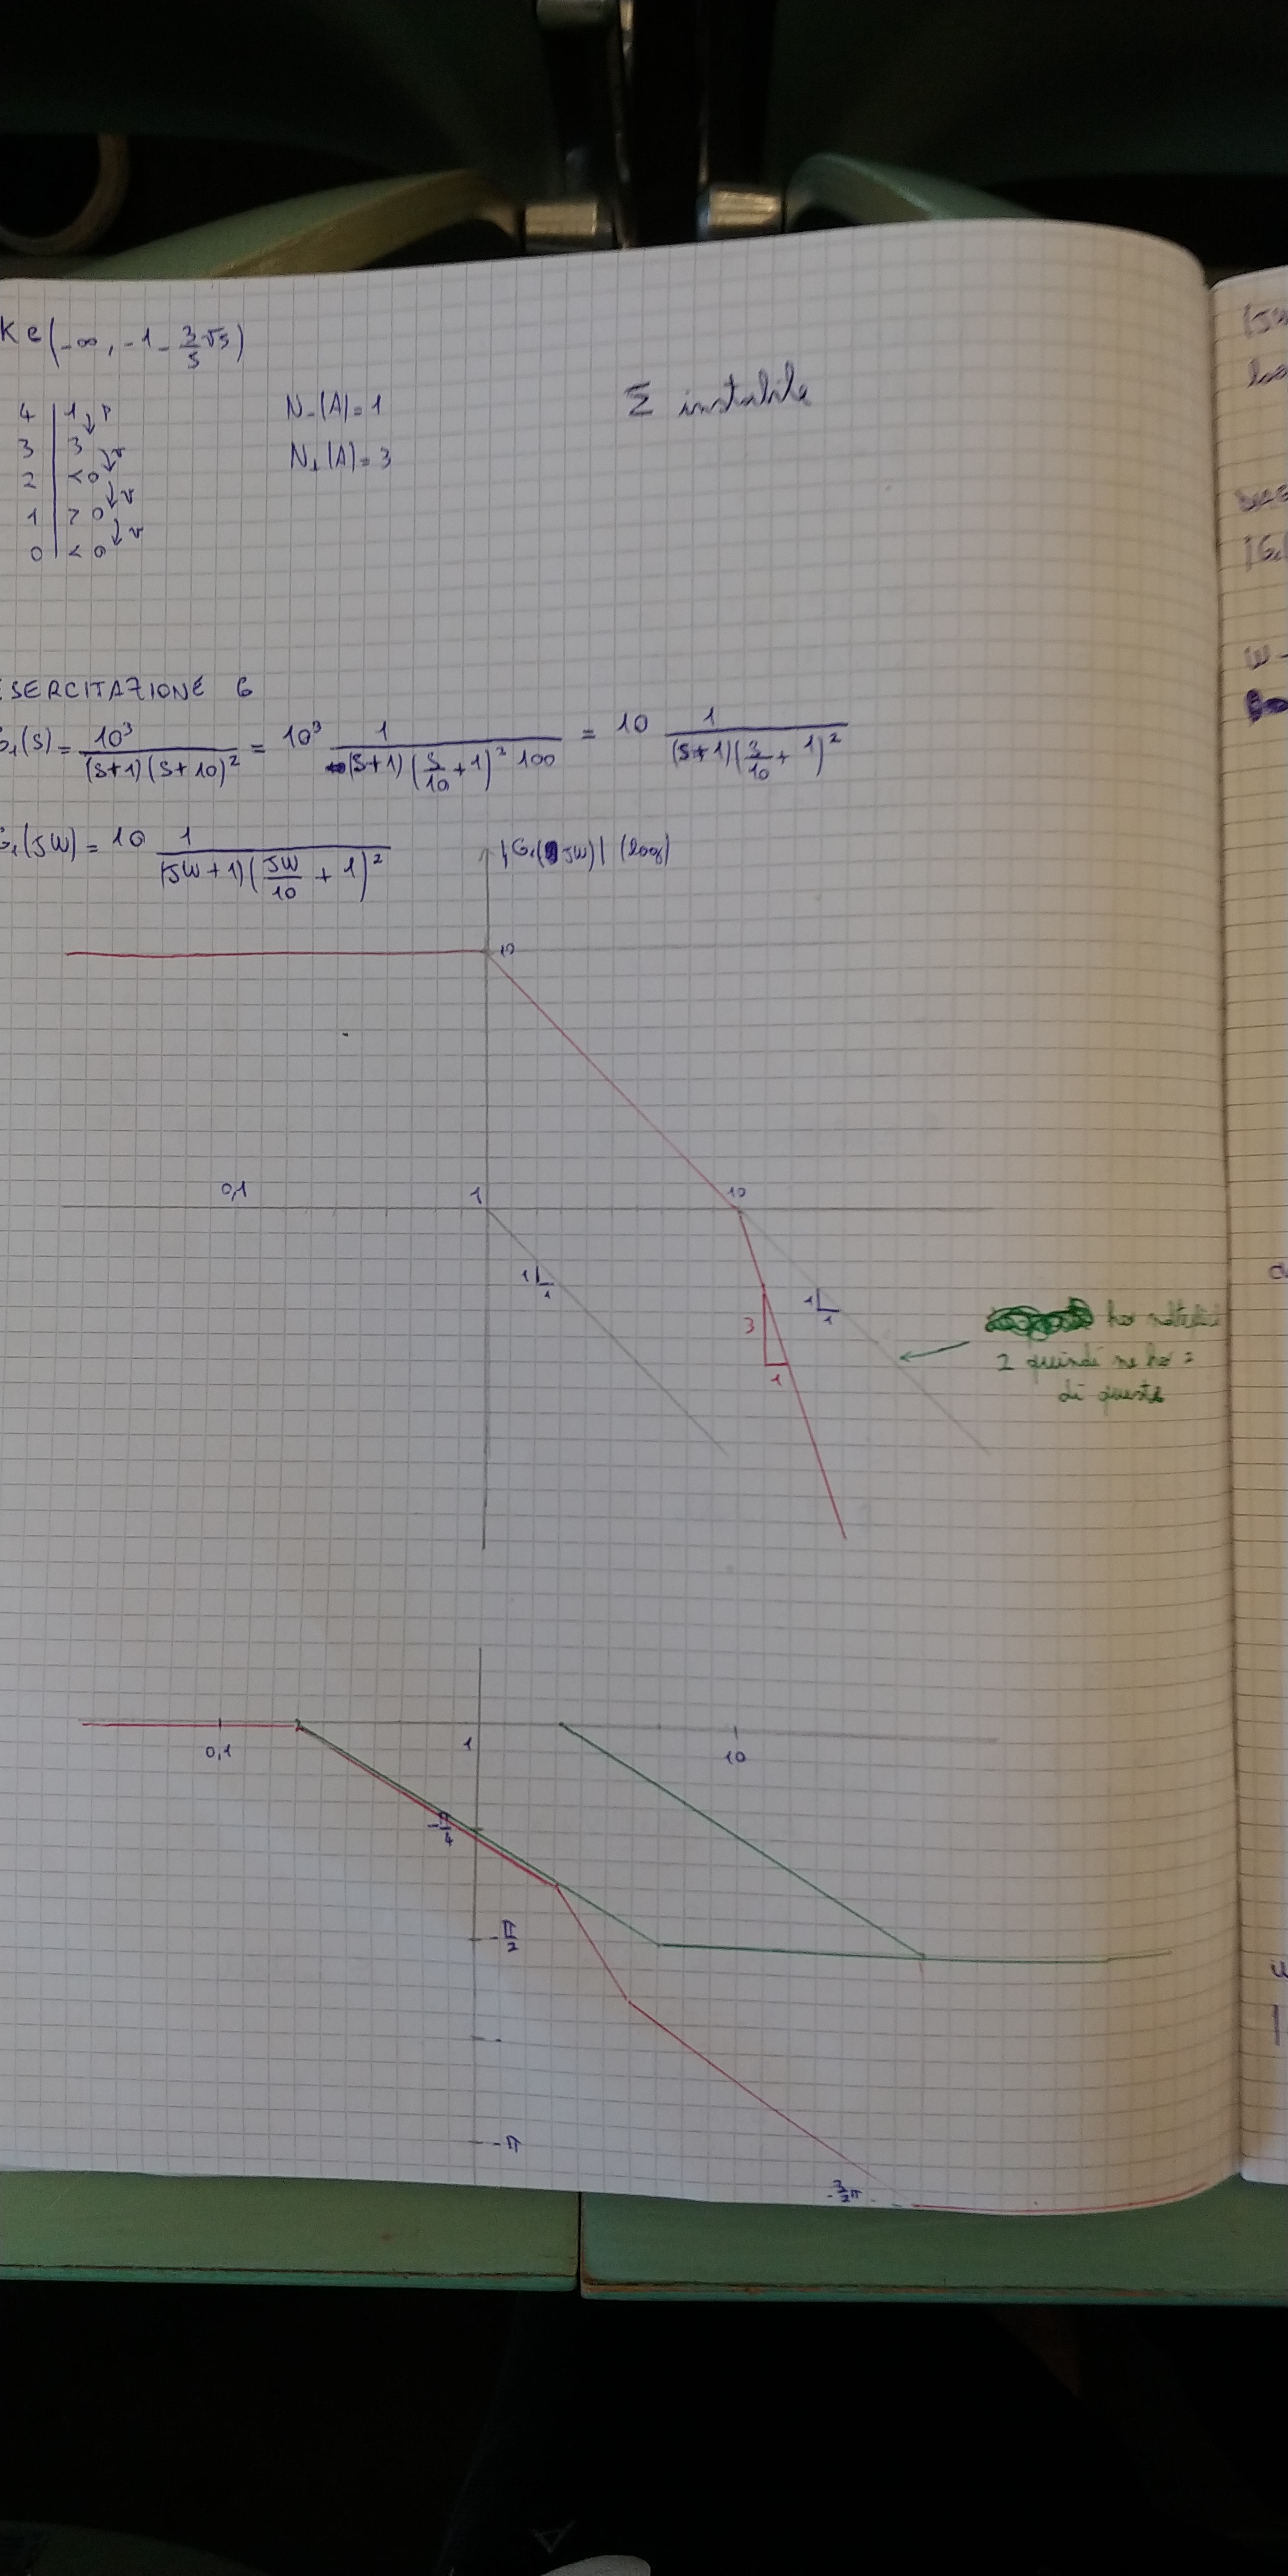 K∈(-∞, -1 - 3/5 √5)
4 | 1 ↓ P
3 | 3 ↓ v
2 | <0 ↓ v
1 | >0 ↓ v
0 | <0
N-(A)=1
N+(A)=3
Σ instabile
ESERCITAZIONE 6
G₁(S) = 10³/((S+1)(S+10)²) = 10³ 1/((S+1)(S/10+1)² 100) = 10 1/((S+1)(S/10+1)²)
G₁(JW) = 10 1/((JW+1)(JW/10+1)²)
|G₁(JW)| (log)
10
0,1 1 10
1
1
1
1
3
1
2 quindi ne ho 2
di queste
0,1 1 10
-π/4
-π/2
-π
-3/2π